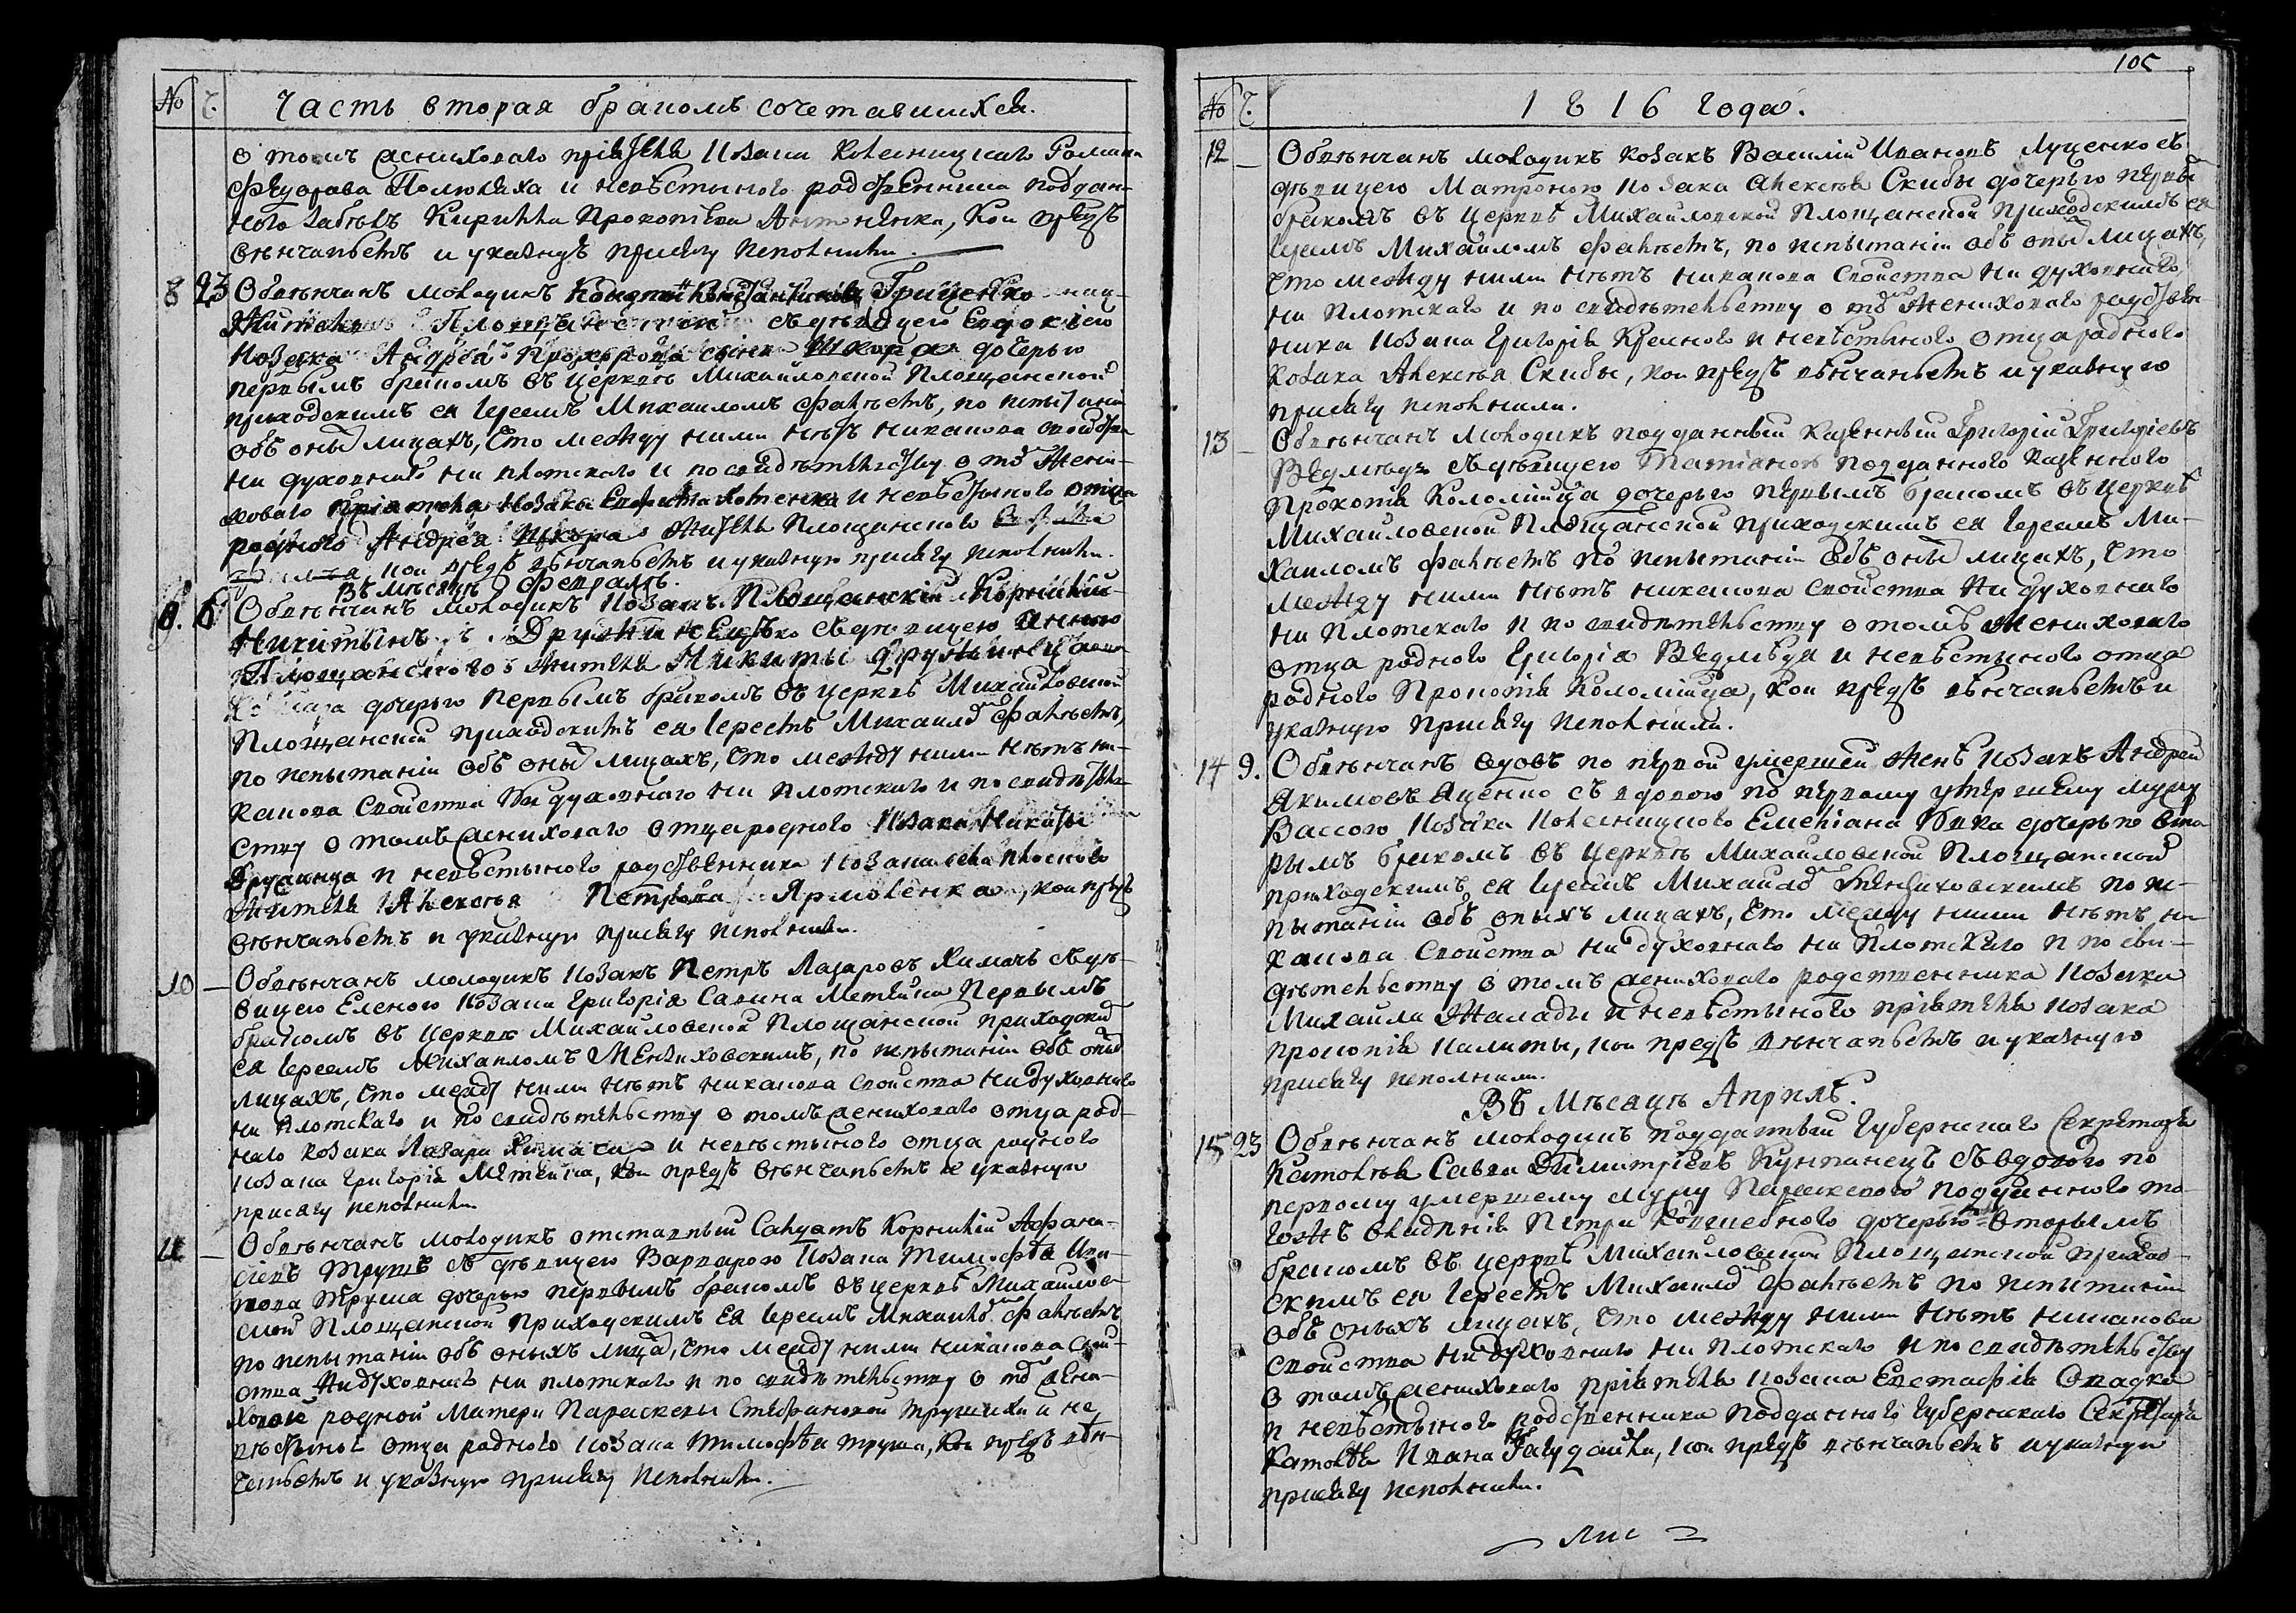 № Ч. Часть вторая бракомъ сочетавшихся.
о томъ жениховаго пріятеля козака Колесницкаго Романа
Федорова Полюляха и невѣстиного родственника поддан-
ного Забѣлъ Кирилла Прокопіева, кои предъ
вѣнчаніемъ и указную присягу исполнили.
8 23 Обвѣнчанъ молодикъ Гриценко
житель Площанской съ дѣвицею Евдокіею
козака Андрея Прохорова сына Шкора дочерью
первымъ бракомъ въ церквѣ Михайловской Площанской
приходскимъ ея Іереемъ Михаиломъ Фальѣемъ, по испытаніи
объ оныхъ лицахъ, что между ними нѣтъ никакова свойства
ни духовнаго ни плотскаго и по свидѣтельству о томъ жени-
ховаго пріятеля козака и невѣстиного отца
родного Андрея Шкора жителя Площанского
кои предъ вѣнчаніемъ и указную присягу исполнили.
Въ мѣсяцѣ Февралѣ.
9. 6 Обвѣнчанъ молодикъ козакъ Площанскій Корнилій
Никитинъ Дружинецъ съ дѣвицею Анною
Площанского жителя Никиты
козака дочерью первымъ бракомъ въ церквѣ Михайловской
Площанской приходскимъ ея Іереемъ Михаиломъ Фальѣемъ,
по испытаніи объ оныхъ лицахъ, что между ними нѣтъ ни-
какова свойства ни духовнаго ни плотскаго и по свидѣтель-
ству о томъ жениховаго отца родного козака Никиты
Дружинца и невѣстиного родственника козака
жителя Алексѣя Петрова Ярмоленка, кои предъ
вѣнчаніемъ и указную присягу исполнили.
10 — Обвѣнчанъ молодикъ козакъ Петръ Лазаровъ Химачъ съ дѣ-
вицею Еленою козака Григорія Савина Метейка первымъ
бракомъ въ церквѣ Михайловской Площанской приходскимъ
ея Іереемъ Михаиломъ Менжиховскимъ, по испытаніи объ оныхъ
лицахъ, что между ними нѣтъ никакова свойства ни духовнаго
ни плотскаго и по свидѣтельству о томъ жениховаго отца род-
наго козака Лазаря Химача и невѣстиного отца родного
козака Григорія Метейка, кои предъ вѣнчаніемъ и указную
присягу исполнили.
11 — Обвѣнчанъ молодикъ отставный Салдатъ Корнилій Афана-
сіевъ Трушъ съ дѣвицею Варварою козака Тимофѣя
Труша дочерью первымъ бракомъ въ церквѣ Михайлов-
ской Площанской приходскимъ ея Іереемъ Михаиломъ Фальѣемъ
по испытаніи объ оныхъ лицахъ, что между ними никакова свой-
ства ни духовнаго ни плотскаго и по свидѣтельству о томъ жени-
ховой родной матери Параскевы Стефановой Трушихи и не-
вѣстиного отца родного козака Тимофѣя Труша, кои предъ вѣн-
чаніемъ и указную присягу исполнили.
105
№ Ч. 1816 Года.
12 — Обвѣнчанъ молодикъ козакъ Василій Ивановъ Луценко съ
дѣвицею Матроною козака Алексѣя Скибы дочерью первымъ
бракомъ въ церквѣ Михайловской Площанской приходскимъ ея
Іереемъ Михаиломъ Фальѣемъ, по испытаніи объ оныхъ лицахъ,
что между ними нѣтъ никакова свойства ни духовнаго
ни плотскаго и по свидѣтельству о томъ жениховаго родствен-
ника козака Григорія и невѣстиного отца родного
козака Алексѣя Скибы, кои предъ вѣнчаніемъ и указную
присягу исполнили.
13 — Обвѣнчанъ молодикъ подданный казенный Григорій Григоріевъ
Ведмѣдь съ дѣвицею Татіаною подданного казенного
Прокопія Коломійца дочерью первымъ бракомъ въ церквѣ
Михайловской Площанской приходскимъ ея Іереемъ Ми-
хаиломъ Фальѣемъ по испытаніи объ оныхъ лицахъ, что
между ними нѣтъ никакова свойства ни духовнаго
ни плотскаго и по свидѣтельству о томъ жениховаго
отца родного Григорія Ведмѣдя и невѣстиного отца
родного Прокопія Коломійца, кои предъ вѣнчаніемъ и
указную присягу исполнили.
14 9. Обвѣнчанъ вдовъ по первой умершей женѣ козакъ Андрей
Якимовъ Яценко съ вдовою по первому умершему мужу
Вассою козака Колесницкого Емеліана дочерью вто-
рымъ бракомъ въ церквѣ Михайловской Площанской
приходскимъ ея Іереемъ Михаиломъ Менжиховскимъ по ис-
пытаніи объ оныхъ лицахъ, что между ними нѣтъ ни-
какова свойства ни духовнаго ни плотскаго и по сви-
дѣтельству о томъ жениховаго родственника козака
Михаила Жалады и невѣстиного пріятеля козака
Прокопія Калиты, кои предъ вѣнчаніемъ и указную
присягу исполнили.
Въ Мѣсяцѣ Априлѣ.
15 23 Обвѣнчанъ молодикъ подданный Губернскаго Секретаря
Катовѣя Савва Димитріевъ съ вдовою по
первому умершему мужу Параскевою подданного то-
гожъ владѣнія Петра дочерью вторымъ
бракомъ въ церквѣ Михайловской Площанской приход-
скимъ ея Іереемъ Михаиломъ Фальѣемъ по испытаніи
объ оныхъ лицахъ, что между ними нѣтъ никакова
свойства ни духовнаго ни плотскаго и по свидѣтельству
о томъ жениховаго пріятеля козака Евстафія
и невѣстиного родственника подданного Губернскаго Секретаря
Катовѣя Ивана, кои предъ вѣнчаніемъ и указную
присягу исполнили.